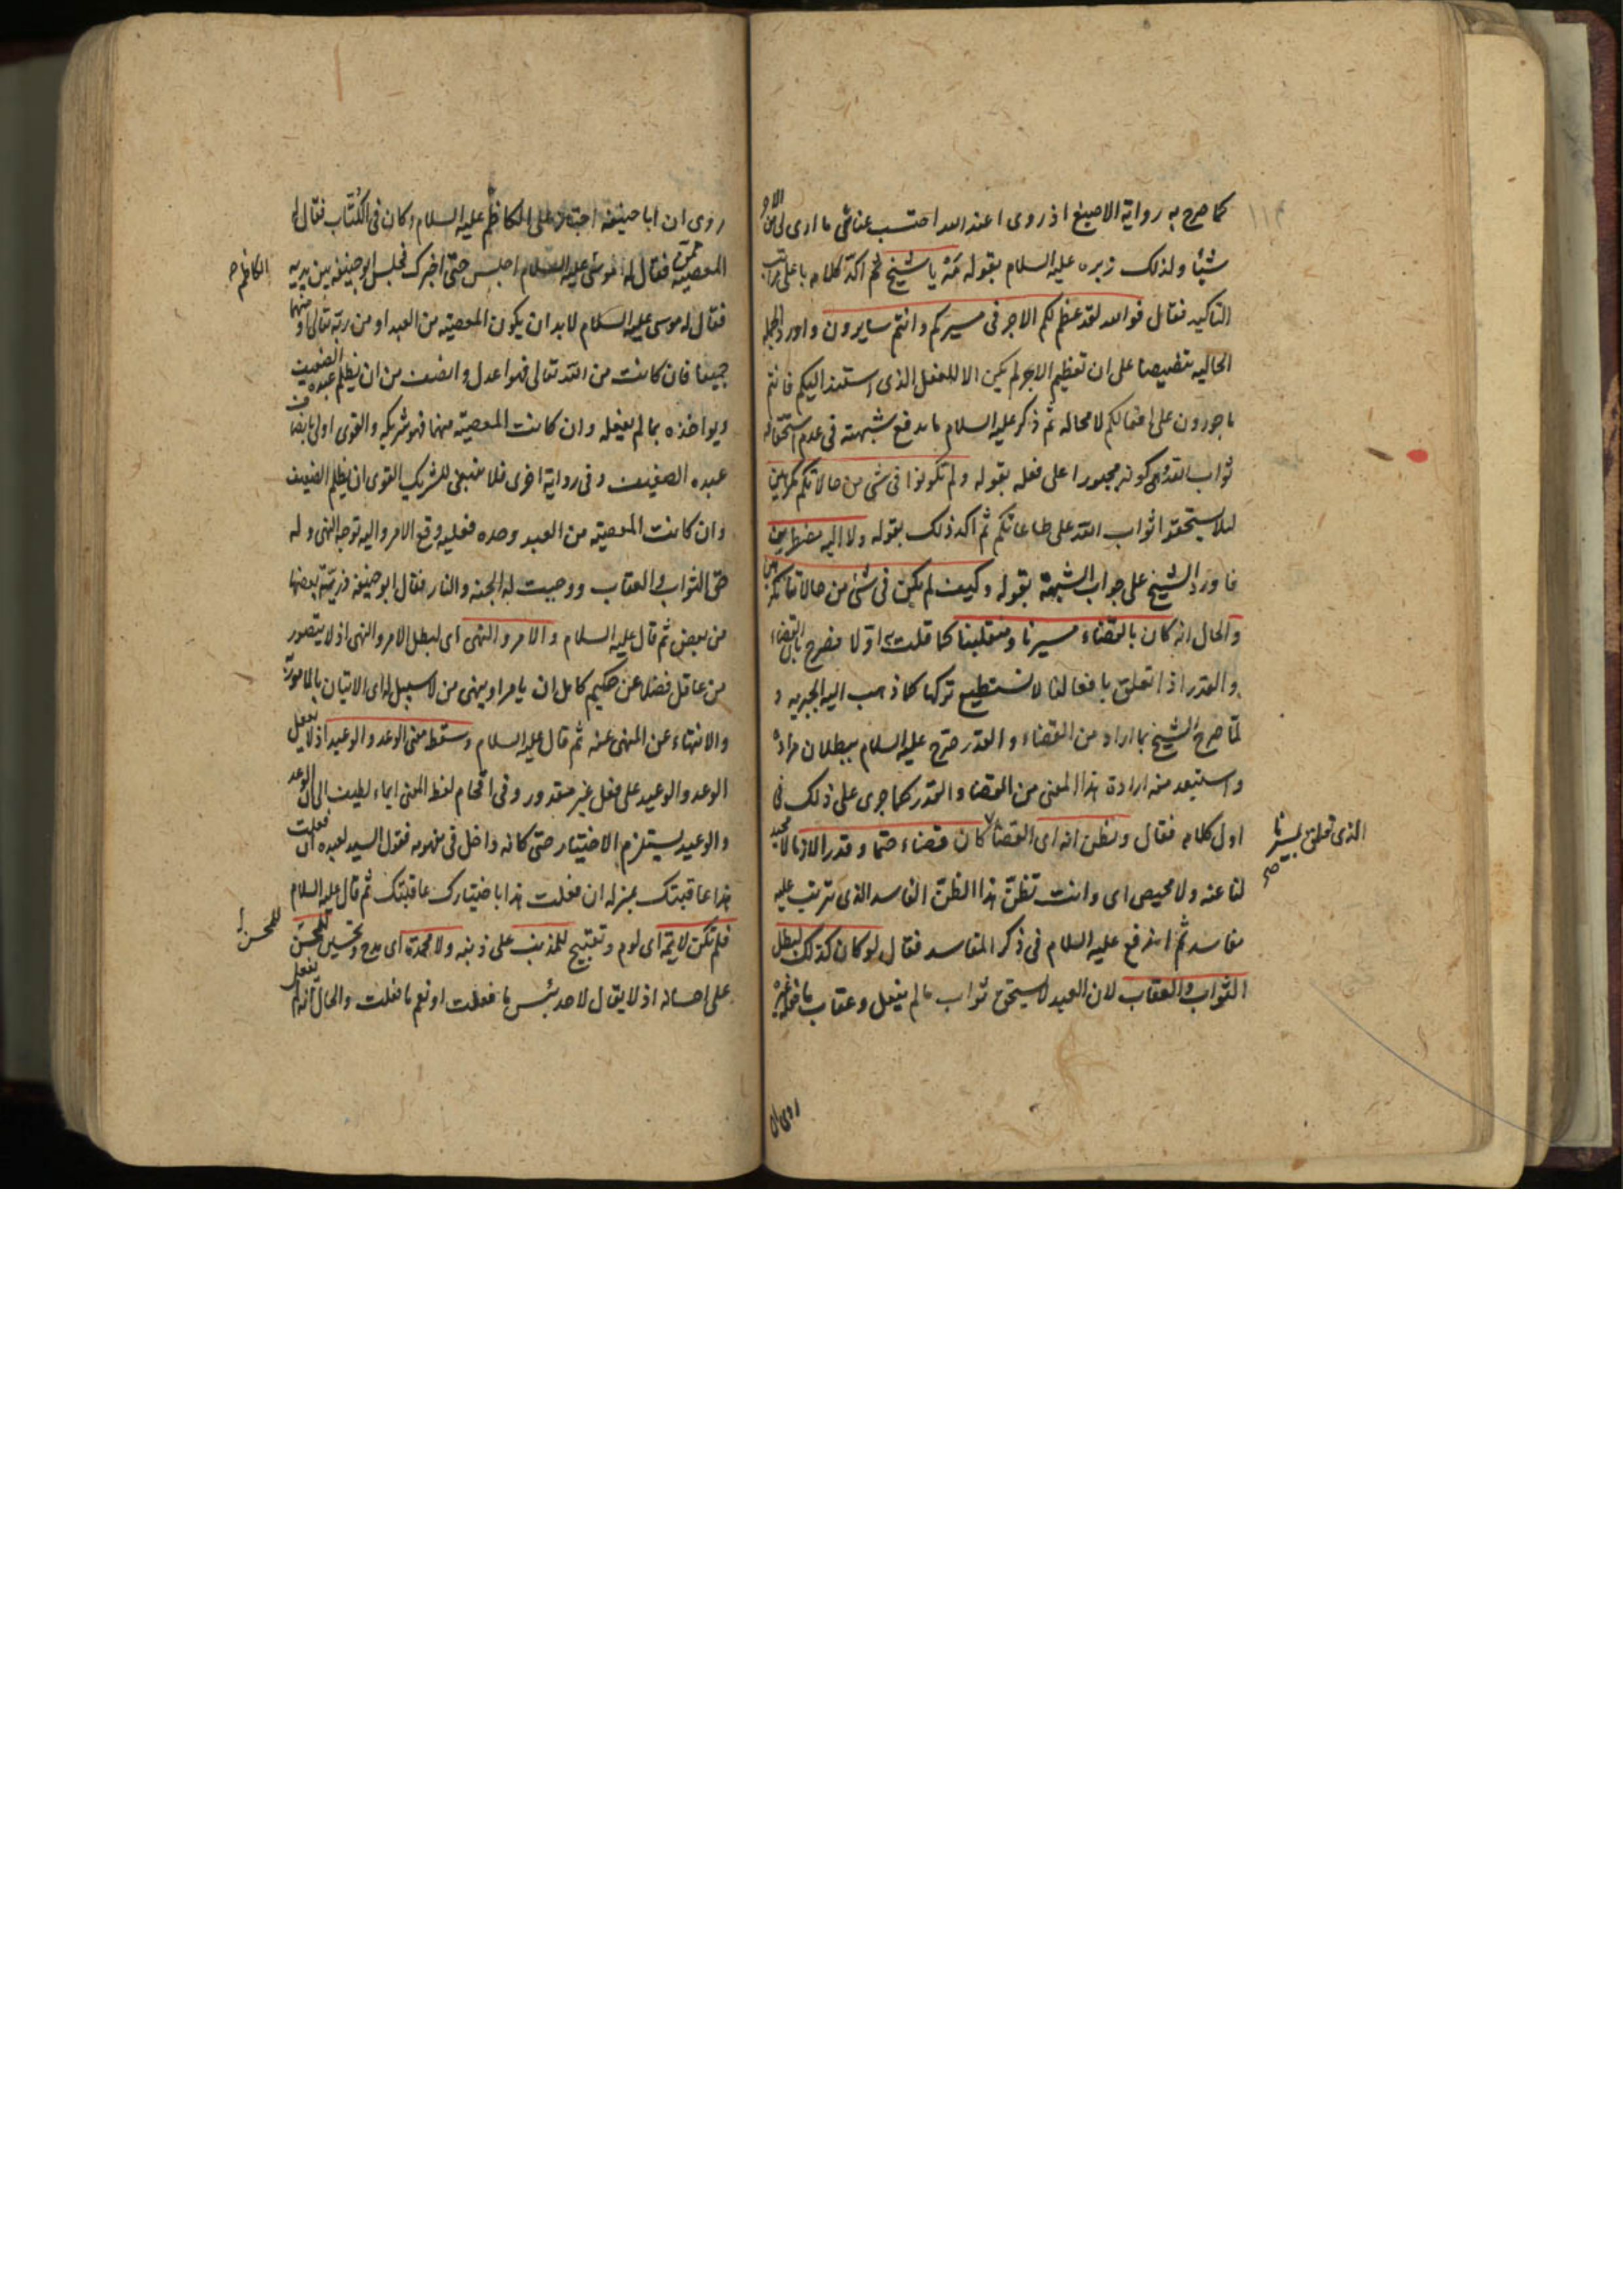 كما صرح به رواية الاصبغ اذ روى اعند الله احتسب عنائى ما ارى لى من الاجر
شيئا ولذلك زبره عليه السلام بقوله مَهْ يا شيخ ثم اكد كلامه باعلى مراتب
التاكيد فقال فوالله لقد عظم لكم الاجر فى مسيركم وانتم سايرون واورد الجملة
الحاليه تنصيصا على ان تعظيم الاجر لم يكن الا للفعل الذى استند اليكم فانتم
ماجورون على افعالكم لا محاله ثم ذكر عليه السلام ما يدفع شبهته فى عدم استحقاقه
ثواب الله وهى كونه مجبورا على فعله بقوله ولم تكونوا فى شئ من حالاتكم مكرهين
لئلا يستحقوا ثواب الله على طاعاتكم ثم اكد ذلك بقوله ولا اليه مضطرين
فاورد الشيخ على جواب الشبهة بقوله وكيف لم يكن فى شئ من حالاتنا مكرهين
والحال انه كان بالقضاء مسيرنا ومنقلبنا كما قلت اولا فصرح بان القضاء
والقدر اذا تعلق بافعالنا لا نستطيع تركها كما ذهب اليه الجبريه و
لما صرح الشيخ بما اراد من القضاء والقدر صرح عليه السلام ببطلان مراده
واستبعد منه ارادة هذا المعنى من القضا والقدر كما جرى على ذلك فى
اول كلامه فقال وتظن انه اى القضا كان قضاء حتما وقدرا لازما لا محيد
الذى تعلق بمسيرنا صح
لنا عنه ولا محيص اى وانت تظن هذا الظن الفاسد الذى تترتب عليه
مفاسد ثم اشرع عليه السلام فى ذكر المفاسد فقال لو كان كذلك لبطل
الثواب والعقاب لان العبد لا يستحق ثواب ما لم يفعل وعقاب ما فعله غيره
روى ان
روى ان ابا حنيفه اجتاز على الكاظم عليه السلام وكان فى الكُتّاب فقال له
المعصية ممن فقال له موسى عليه السلام اجلس حتى اخبرك فجلس ابو حنيفه بين يديه
الكاظم ح
فقال له موسى عليه السلام لابد ان يكون المعصيه من العبد او من ربه تعالى او منهما
جميعا فان كانت من الله تعالى فهو اعدل وانصف من ان يظلم عبده الضعيف
ويواخذه بما لم يفعله وان كانت المعصيه منهما فهو شريكه والقوى اولى بانصاف
عبده الضعيف وفى رواية اخرى فلا ينبغى للشريك القوى ان يظلم الضعيف
وان كانت المعصيه من العبد وحده فعليه وقع الامر واليه توجه النهى وله
حق الثواب والعقاب ووجبت له الجنه والنار فقال ابو حنيفه ذرية بعضها
من بعض ثم قال عليه السلام والامر والنهى اى لبطل الامر والنهى اذ لا يتصور
من عاقل فضلا عن حكيم كامل ان يامر او ينهى من لا سبيل له اى الاتيان بالمامور به
والانتهاء عن المنهى عنه ثم قال عليه السلام وسقط معنى الوعد والوعيد اذ لا يعقل
الوعد والوعيد على فعل غير مقدور وفى اقحام لفظ المعنى ايماء لطيف الى ان الوعد
والوعيد يستلزم الاختيار حتى كانه داخل فى مفهومه فقول السيد لعبده ان فعلت
هذا عاقبتك بمنزله ان فعلت هذا باختيارك عاقبتك ثم قال عليه السلام
فلم تكن لائمة اى لوم وتقبيح للمذنب على ذنبه ولا محمدة اى مدح وتحسين للمحسن
للمحسن
على احسانه اذ لا يقال لاحد بئس ما فعلت او نعم ما فعلت والحال انه لم يفعل